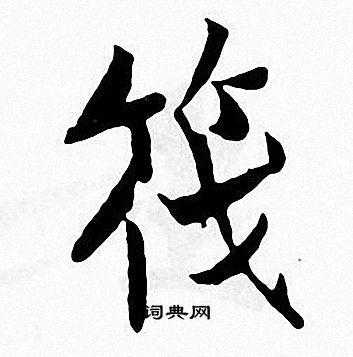 筏
词典网